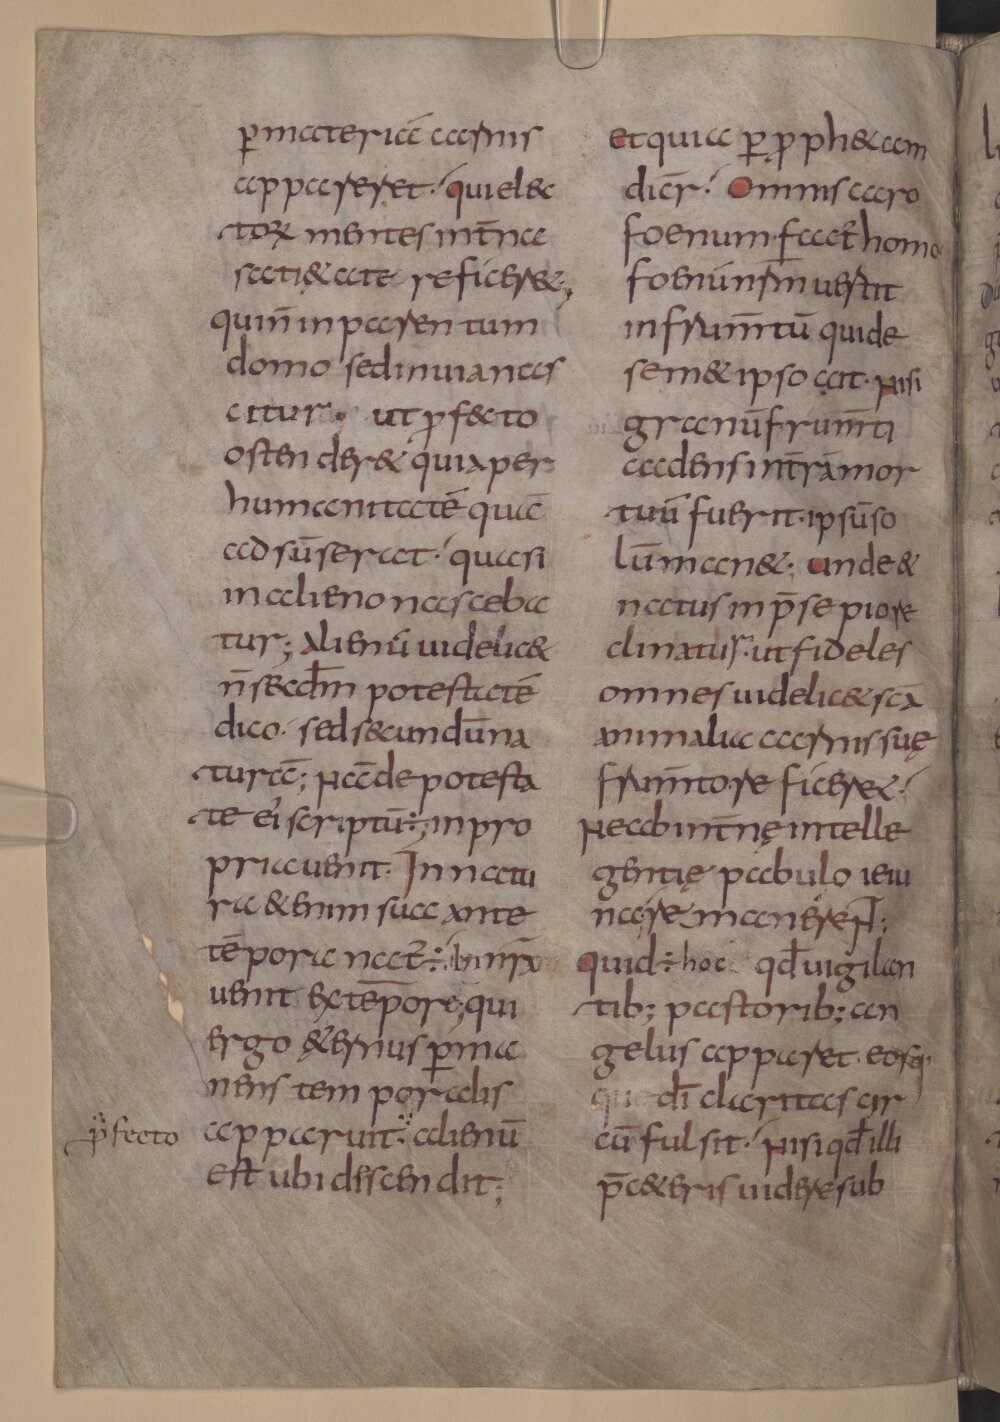 p̱ materiā carnis
apparer&et· qui elec
toꝝ mentes int̄na
sati&ate reficer&;
qui n̄ in parentum
domo sed in uia nas
citur· ut ꝓfecto
ostender& quia per
humanitatē quā
adsūserat· quasi
in alieno nasceba
tur; Alienū uidelic&
n̄ secd̄m potestatē
dico· sed secundū na
turā; Nā de potesta
te ei' scriptū÷; in pro
pria uenit· In natu
ra &enim sua ante
tēpora nat' ÷· in nr̄a
uenit ex tēpore; qui
ergo &ernus p̱ma
nens temporalis
apparuit· alienū
est ubi discendit;
ꝓfecto
et quia p̱ ꝓph&am
dicr̄· Omnis caro
foenum· fact' homo
foenū nr̄m uertit
in frum̄tū qui de
sem&ipso ait· Nisi
granū frum̄ti
cadens in t̄rā mor
tuū fuerit· ipsū so
lū man&; unde &
natus in p̄sepio re
clinatur· ut fideles
omnes uidelic& scā
animalia carnis suę
frum̄to reficer&·
Ne ab int̄nę intelle
gentię pabulo ieiu
na remaneren̄t;
Quid ÷ hoc qd̄ uigilan
tib; pastorib; an
gelus apparet· eosq;
dī claritas cir
cū fulsit· Nisi qd̄ illi
p̄ c&eris uidere sub